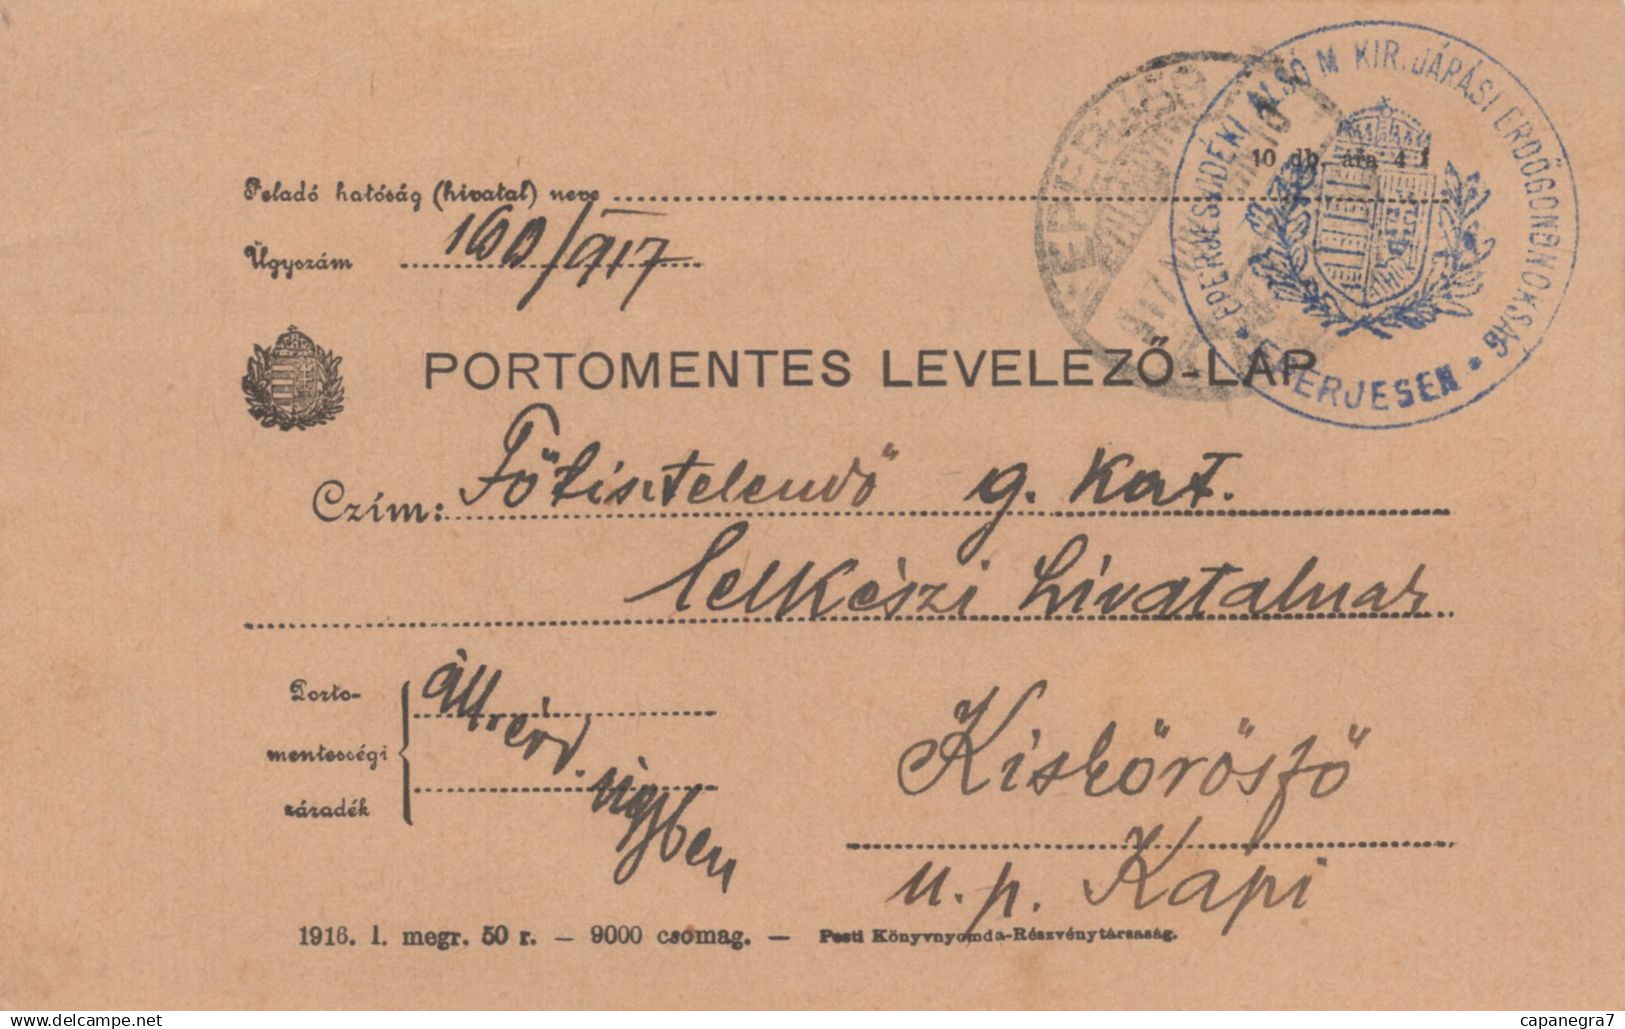 EPERJESVIDÉKI ALSÓ M KIR. JÁRÁSI ERDŐGONDNOKSÁG
* EPERJESEN *
EPERJES
10 db. ára 4 f
Feladó hatóság (hivatal) neve
Ügyszám 160/917
PORTOMENTES LEVELEZŐ-LAP
Czím: Főtisztelendő g. kat.
lelkészi hivatalnak
Porto-
mentességi
záradék
áll. erd.
ügyben
Kiskörösfő
u. p. Kapi
1916. I. megr. 50 r. — 9000 csomag. — Pesti Könyvnyomda-Részvénytársaság.
www.delcampe.net
capanegra7